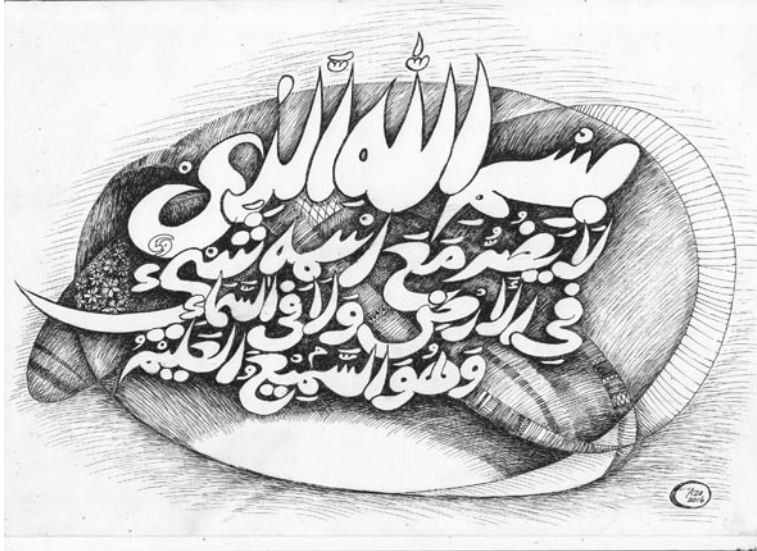 بِسْمِ اللهِ الَّذِىْ
لَا يَضُرُّ مَعَ اسْمِهِ شَىْءٌ
فِى الْأَرْضِ وَلَا فِى السَّمَاءِ
وَهُوَ السَّمِيْعُ الْعَلِيْمُ
2016